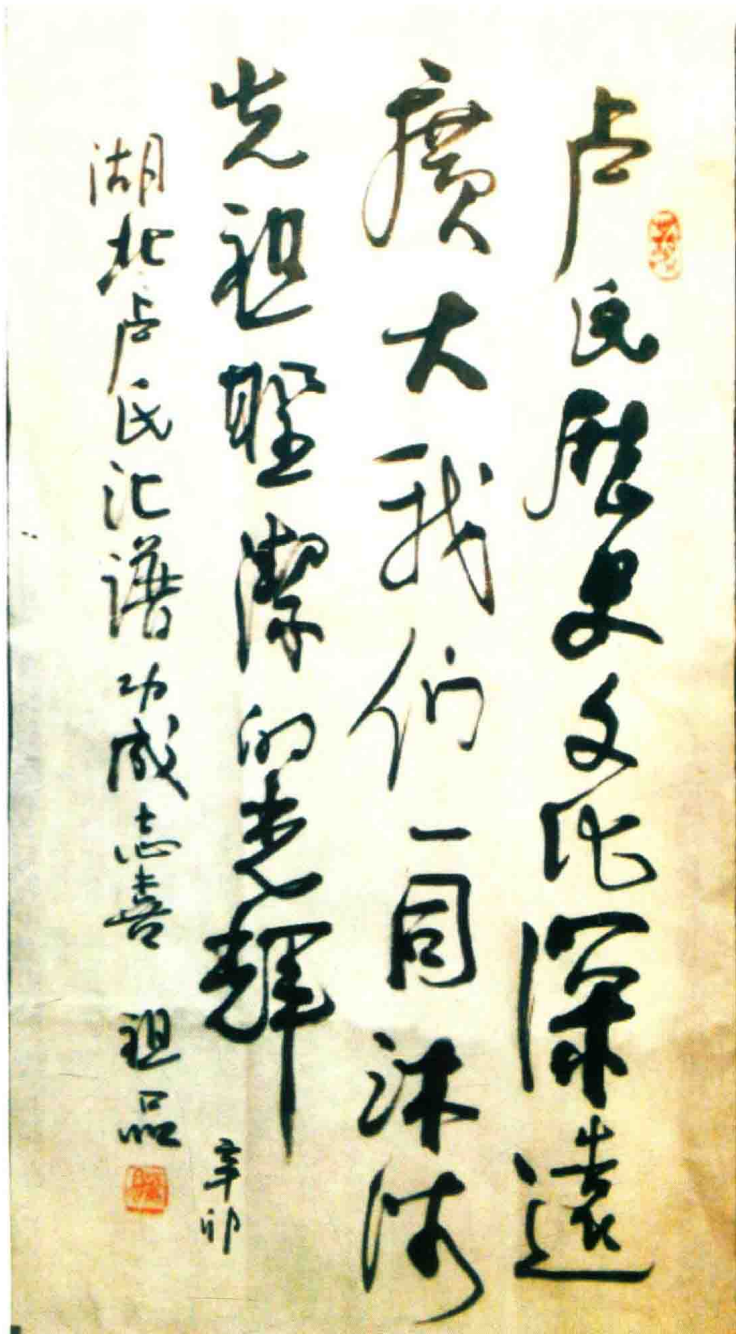 卢氏歷史文化深遠
廣大我们一同沐浴
先祖聖潔的光輝
辛卯
湖北卢氏汇谱功成志喜 祖品